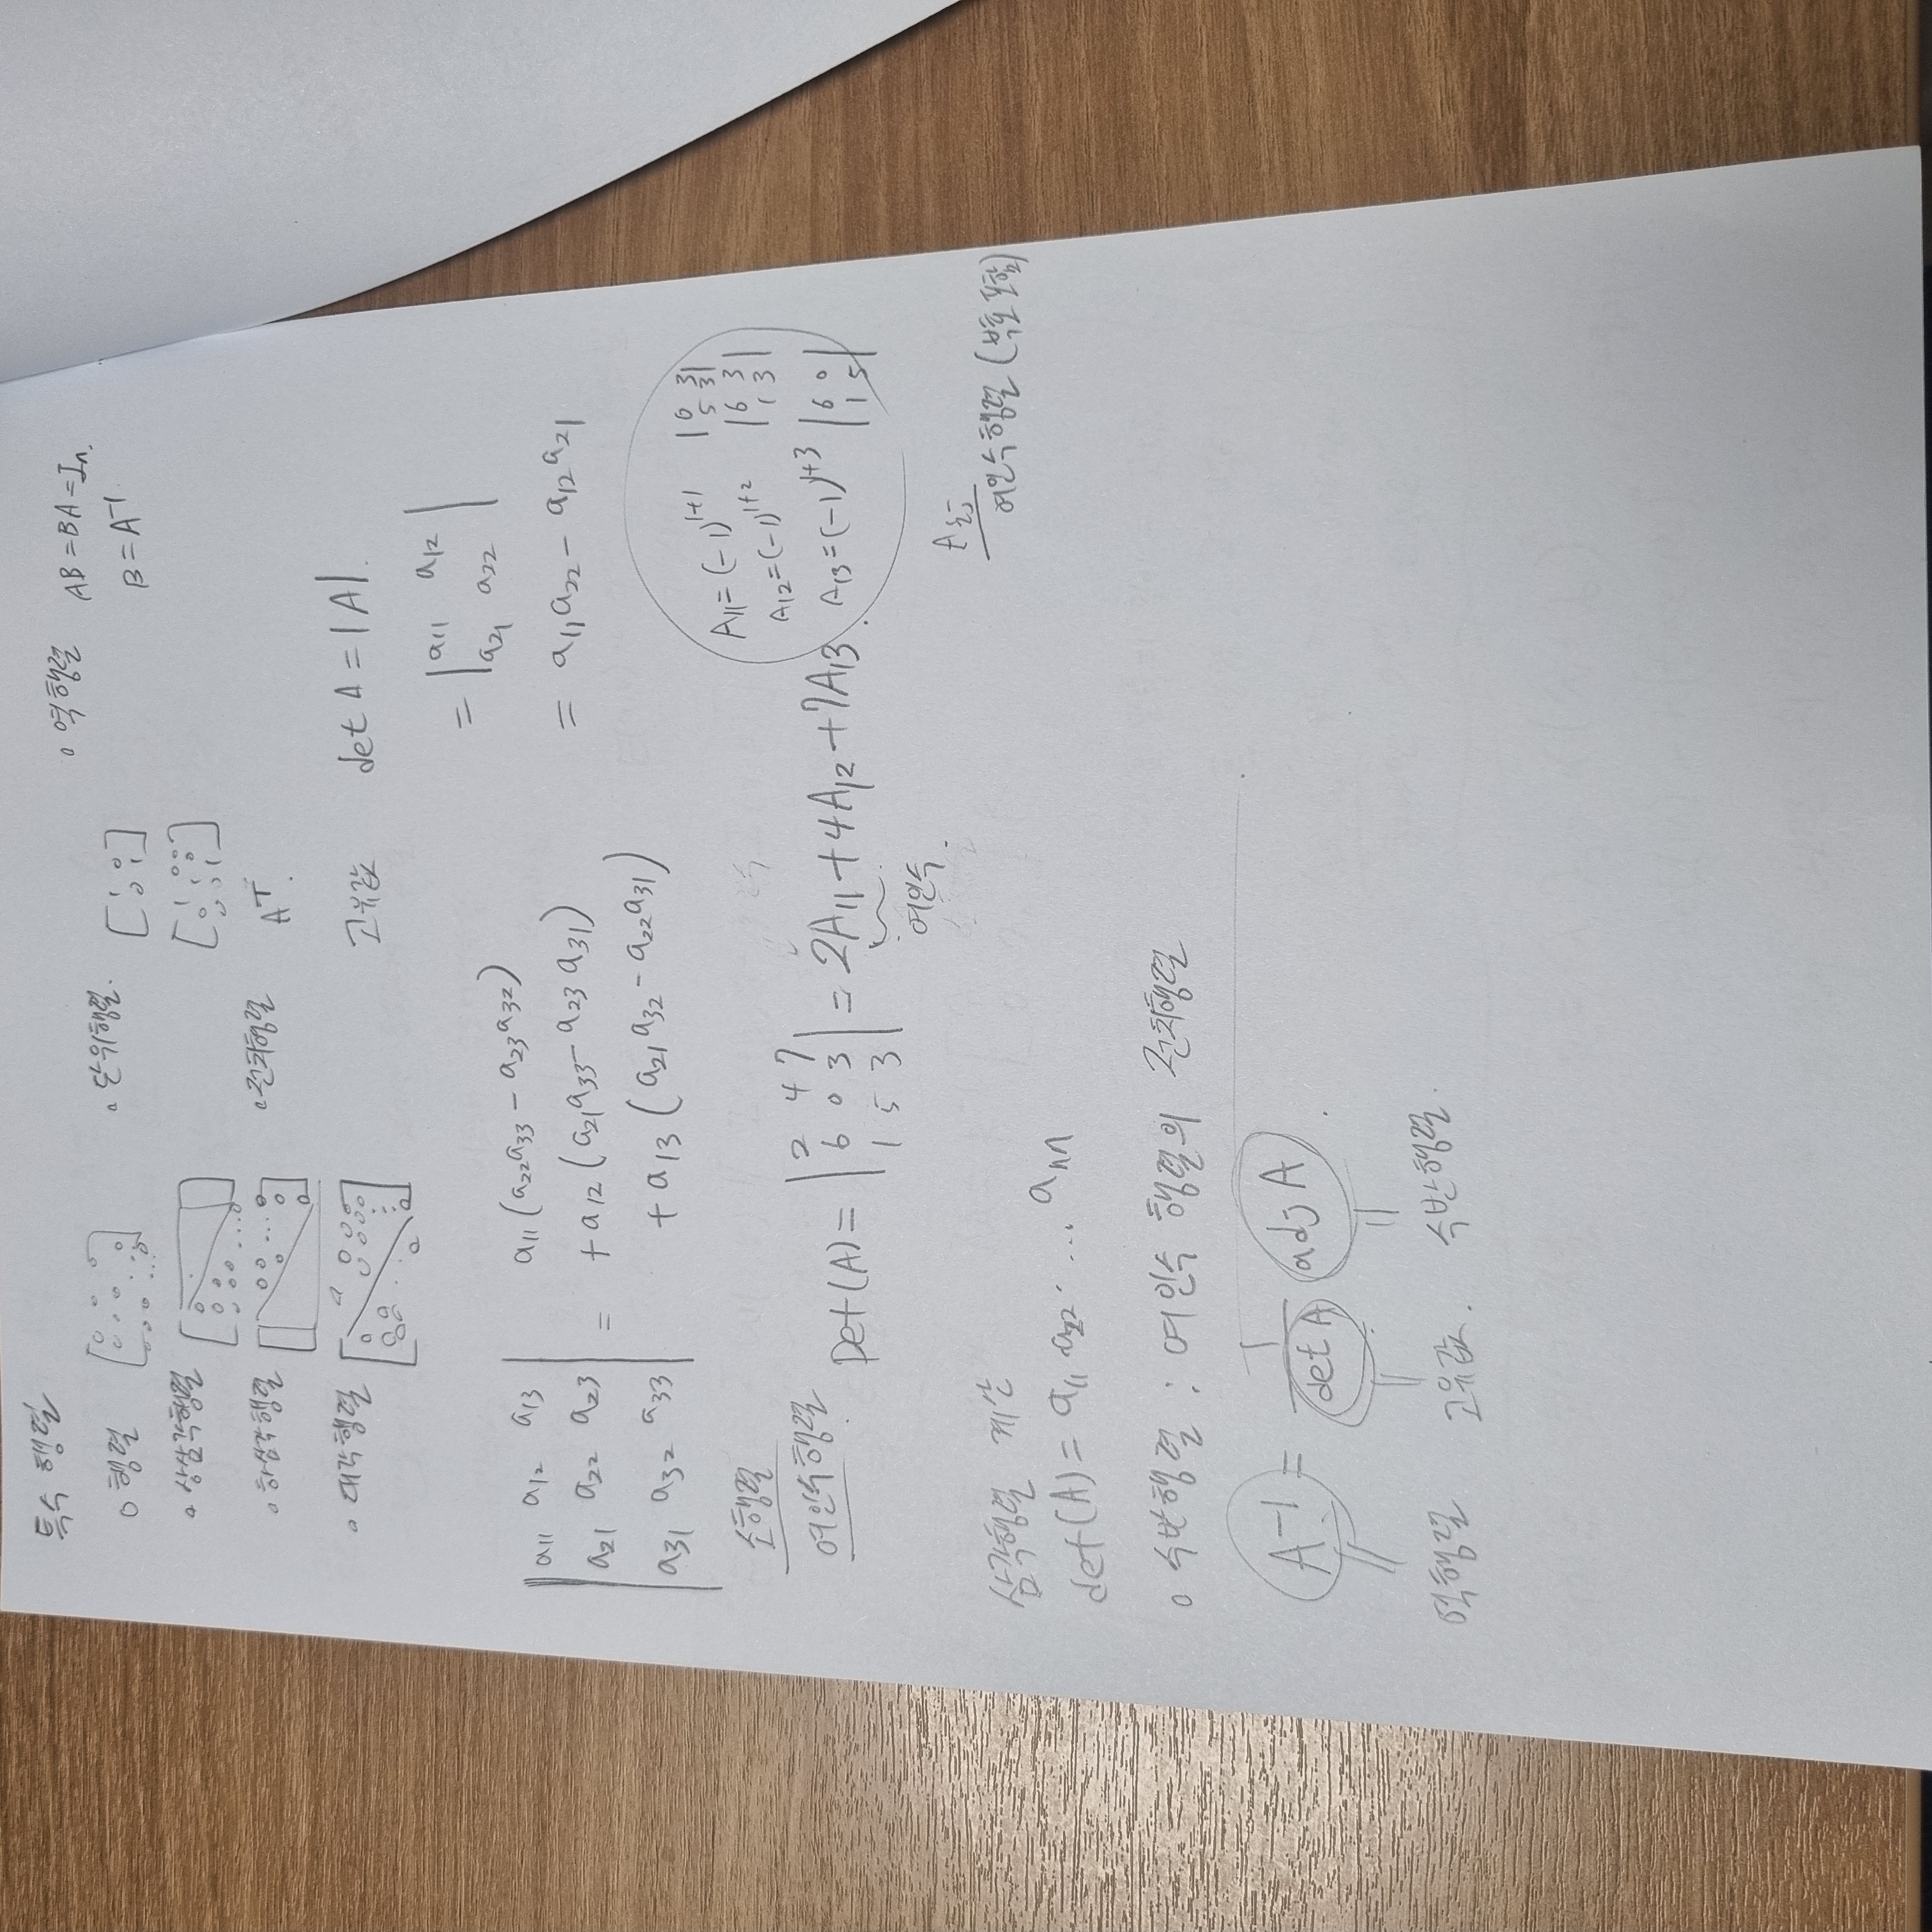 특수 행렬
o 행렬
o 상삼각행렬
o 하삼각행렬
o 대각행렬
o 단위행렬.
[1 0
0 1]
o 전치행렬 A^T.
o 역행렬 AB = BA = In.
B = A^-1
고유값 det A = |A|.
= |a11 a12
a21 a22|
= a11a22 - a12a21
|a11 a12 a13
a21 a22 a23
a31 a32 a33| =
a11(a22a33 - a23a32)
+ a12(a21a33 - a23a31)
+ a13(a21a32 - a22a31)
소행렬
여인수행렬.
Det(A) = |2 4 7
6 0 3
1 5 3| = 2A11 + 4A12 + 7A13.
여인수.
A11 = (-1)^1+1 |0 3
5 3|
A12 = (-1)^1+2 |6 3
1 3|
A13 = (-1)^1+3 |6 0
1 5|
Aij
여인수행렬 (부호 포함)
삼각행렬 계산
det(A) = a11 a22 · ... ann
o 수반행렬 : 여인수 행렬의 전치행렬
A^-1 = 1/det A adj A.
역행렬 고유값. 수반행렬.